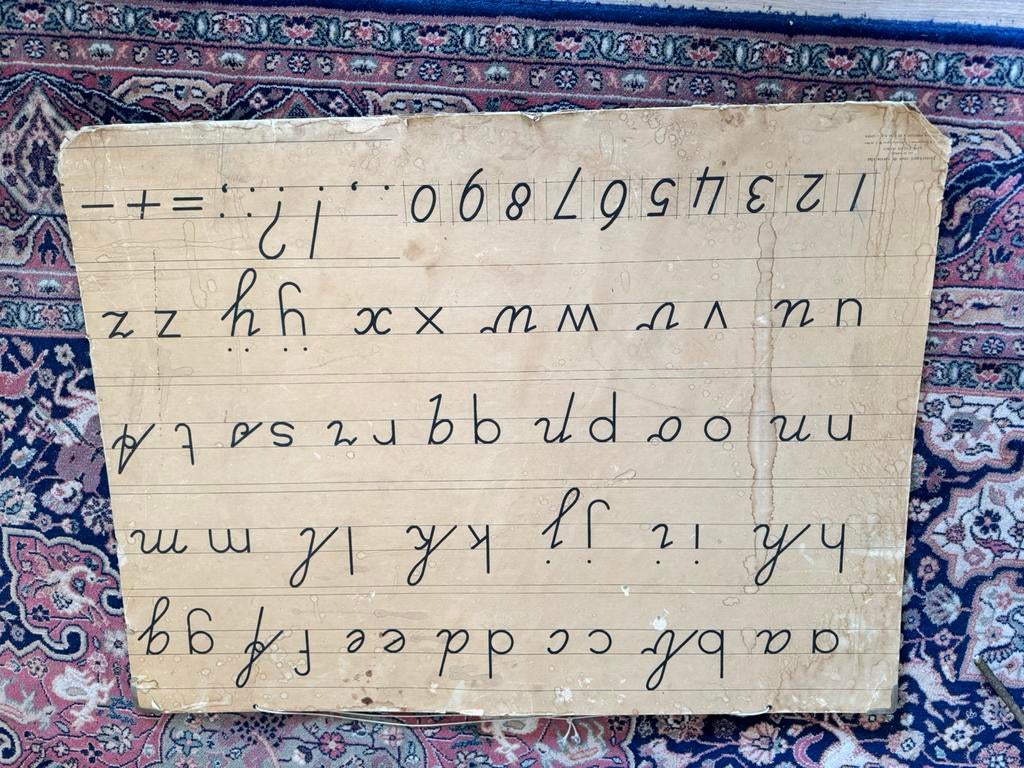 a a b b c c d d e e f f g g
h h i i j j k k l l m m
n n o o p p q q r r s s t t
u u v v w w x x ÿ ÿ z z
1 2 3 4 5 6 7 8 9 0 . , ! ? : ; = + -